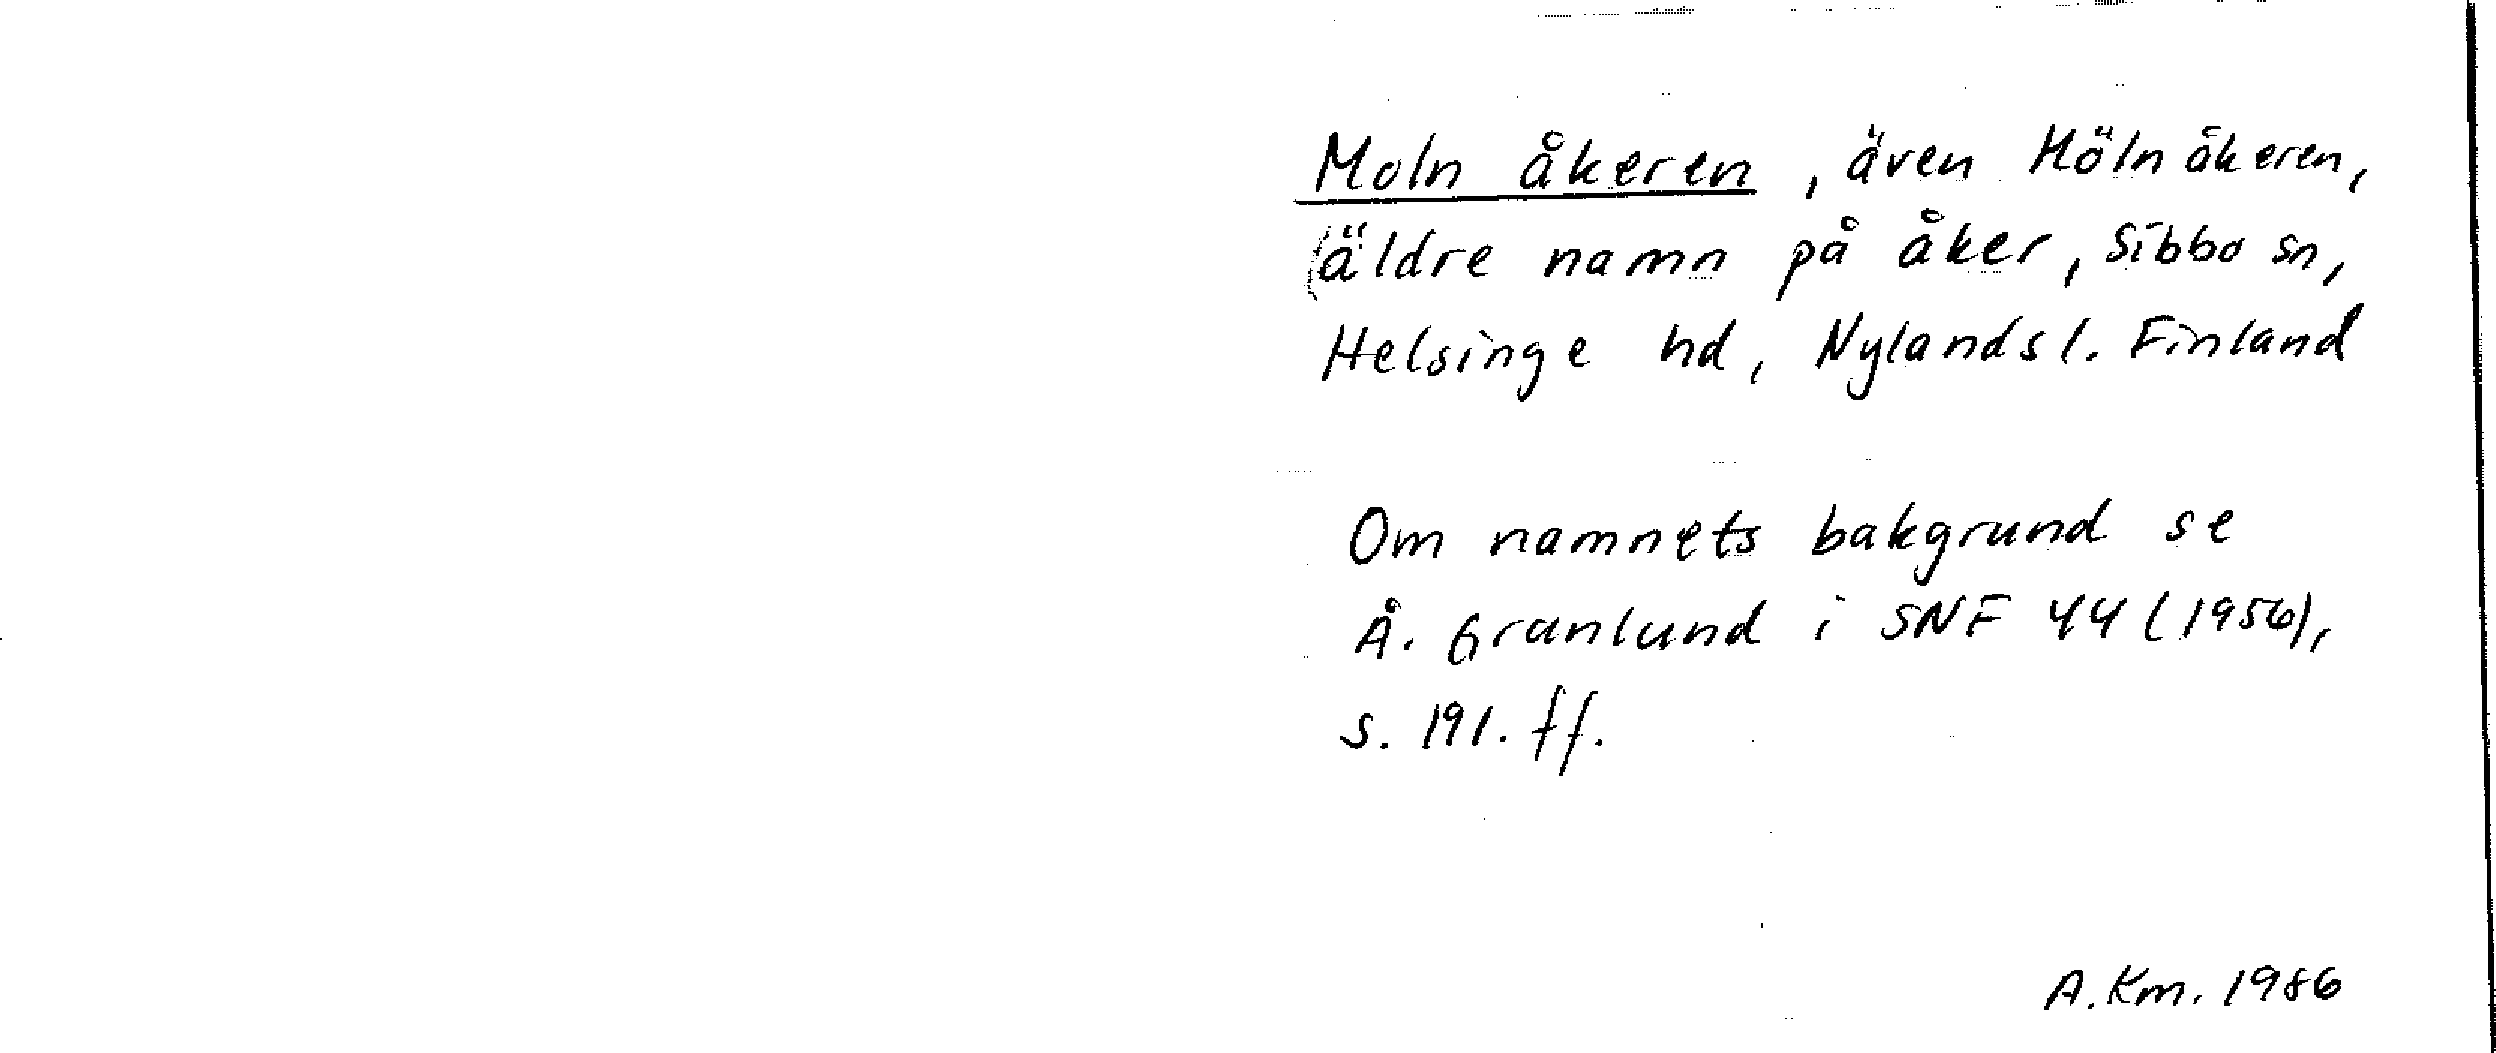 Moln åkeren, även Möln åkeren,
äldre namn på åker, Sibbo sn,
Helsinge hd, Nylands l. Finland
Om namnets bakgrund se
Å. Granlund i SNF 44 (1956),
s. 191. ff.
A. Km. 1986